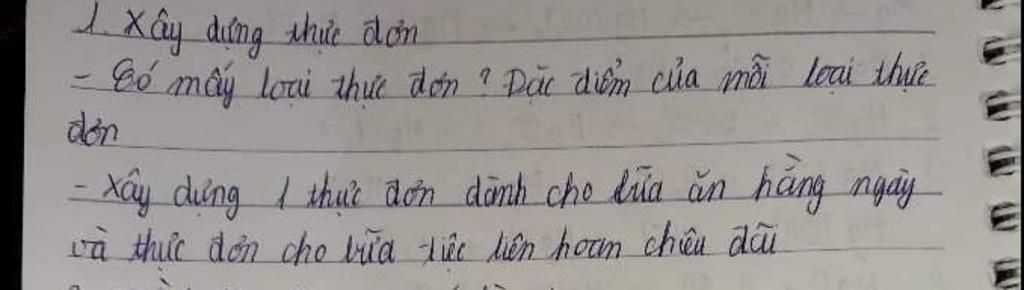 1. Xây dựng thực đơn
- Có mấy loại thực đơn? Đặc điểm của mỗi loại thực
đơn
- Xây dựng 1 thực đơn dành cho bữa ăn hằng ngày
và thực đơn cho bữa tiệc liên hoan chiêu đãi